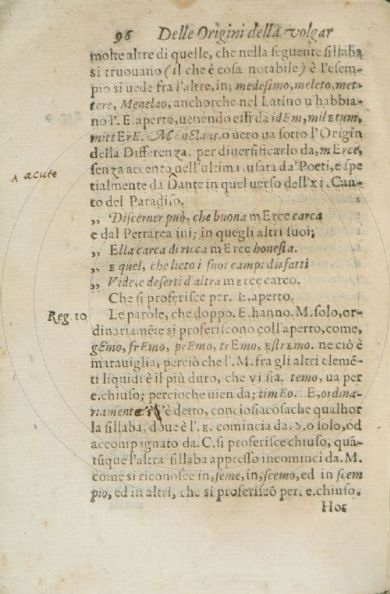 96 Delle Origini della volgar
molte altre di quelle, che nella seguente sillaba
si truouano (il che è cosa notabile) è l'esem-
pio si uede fra l'altre, in, medesimo, meleto, met-
tere, Menelao, anchorche nel Latino u'habbia-
no l'.E. aperto, uenendo essi da idEm, milEtum,
mittErE. MEnElaus. o uero ua sotto l'Origin
della Differenza, per diuersificarlo da, mErce,
A acute
senza accento nell'ultima, usata da' Poeti, e spe
tialmente da Dante in quel uerso dell'xi. Can-
to del Paradiso.
„ Discerner può, che buona mErce carca
e dal Petrarca iui; in quegli altri suoi;
„ Ella carca di ricca mErce honesta.
„ E quel, che lieto i suoi campi disfatti
„ Vide, e deserti d'altra mErce carco.
Che si proferisce per .E. aperto.
Reg. 10 Le parole, che doppo .E. hanno .M. solo, or-
dinariamẽte si proferiscono coll'aperto, come,
gEmo, frEmo, prEmo, trEmo, EstrEmo. ne ciò è
marauiglia, perciò che l'.M. fra gli altri elemẽ-
ti liquidi è il più duro, che vi sia. temo, ua per
e. chiuso; percioche uien da; timEo. E, ordina-
riamente è detto, conciosiacosache qualhor
la sillaba, doue è l'.E. comincia da .S. o solo, od
accompagnato da .C. si proferisce chiuso, quã-
tũque l'altra sillaba appresso incominci da .M.
come si riconosce in, seme, in, scemo, ed in scem
pio, ed in altri, che si proferiscõ per .e. chiuso.
Hos